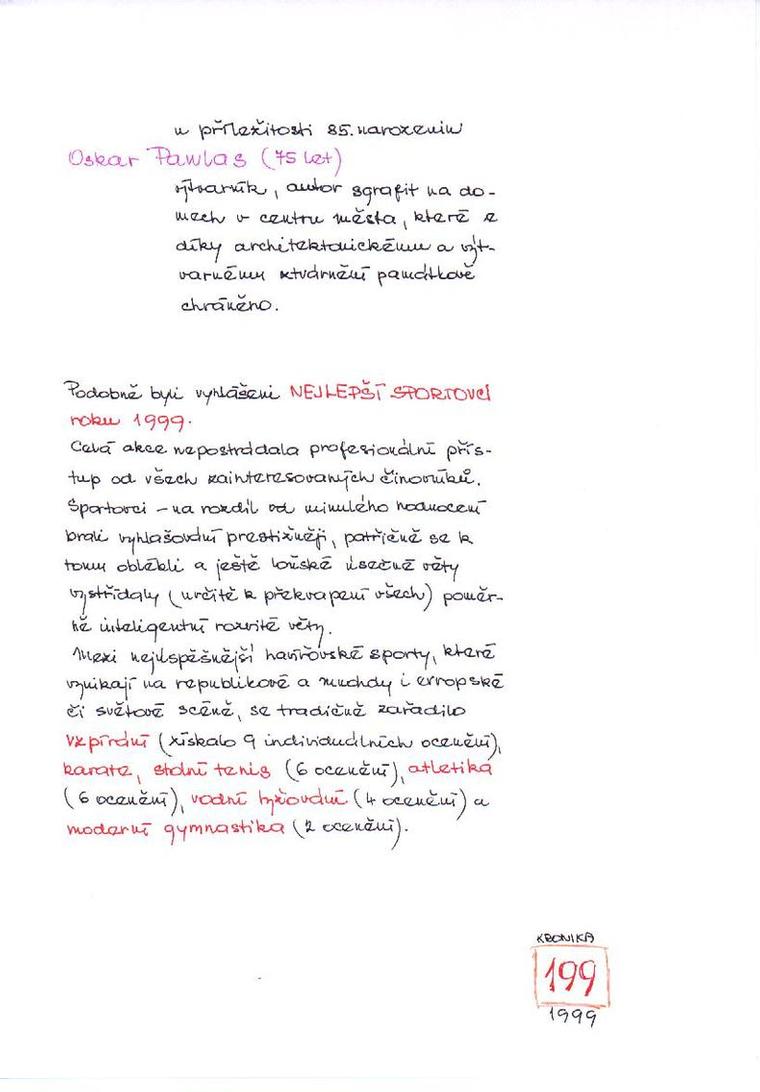 u příležitosti 85. narozenin
Oskar Pawlas (75 let)
výtvarník, autor sgrafit na do-
mech v centru města, které je
díky architektonickému a výt-
varnému ztvárnění památkově
chráněno.
Podobně byli vyhlášeni NEJLEPŠÍ SPORTOVCI
roku 1999.
Celá akce nepostrádala profesionální přís-
tup od všech zainteresovaných činovníků.
Sportovci – na rozdíl od minulého hodnocení
brali vyhlašování prestižněji, patřičně se k
tomu oblékli a ještě loňské úsečné věty
vystřídaly (určitě k překvapení všech) poměr-
ně inteligentní rozvité věty.
Mezi nejúspěšnější havířovské sporty, které
vynikají na republikové a mnohdy i evropské
či světové scéně, se tradičně zařadilo
vzpírání (získalo 9 individuálních ocenění),
karate, stolní tenis (6 ocenění), atletika
(6 ocenění), vodní lyžování (4 ocenění) a
moderní gymnastika (2 ocenění).
KRONIKA
199
1999